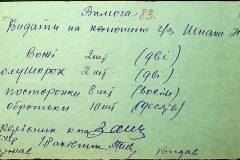 Вимога 83.
Видати на конюшню ч/з Шпака Н
Вожі 2 шт (дві)
полушорок 2 шт (дві)
посторонки 8 шт (восім)
обротьки 10 шт (десять)
Керівник к-па